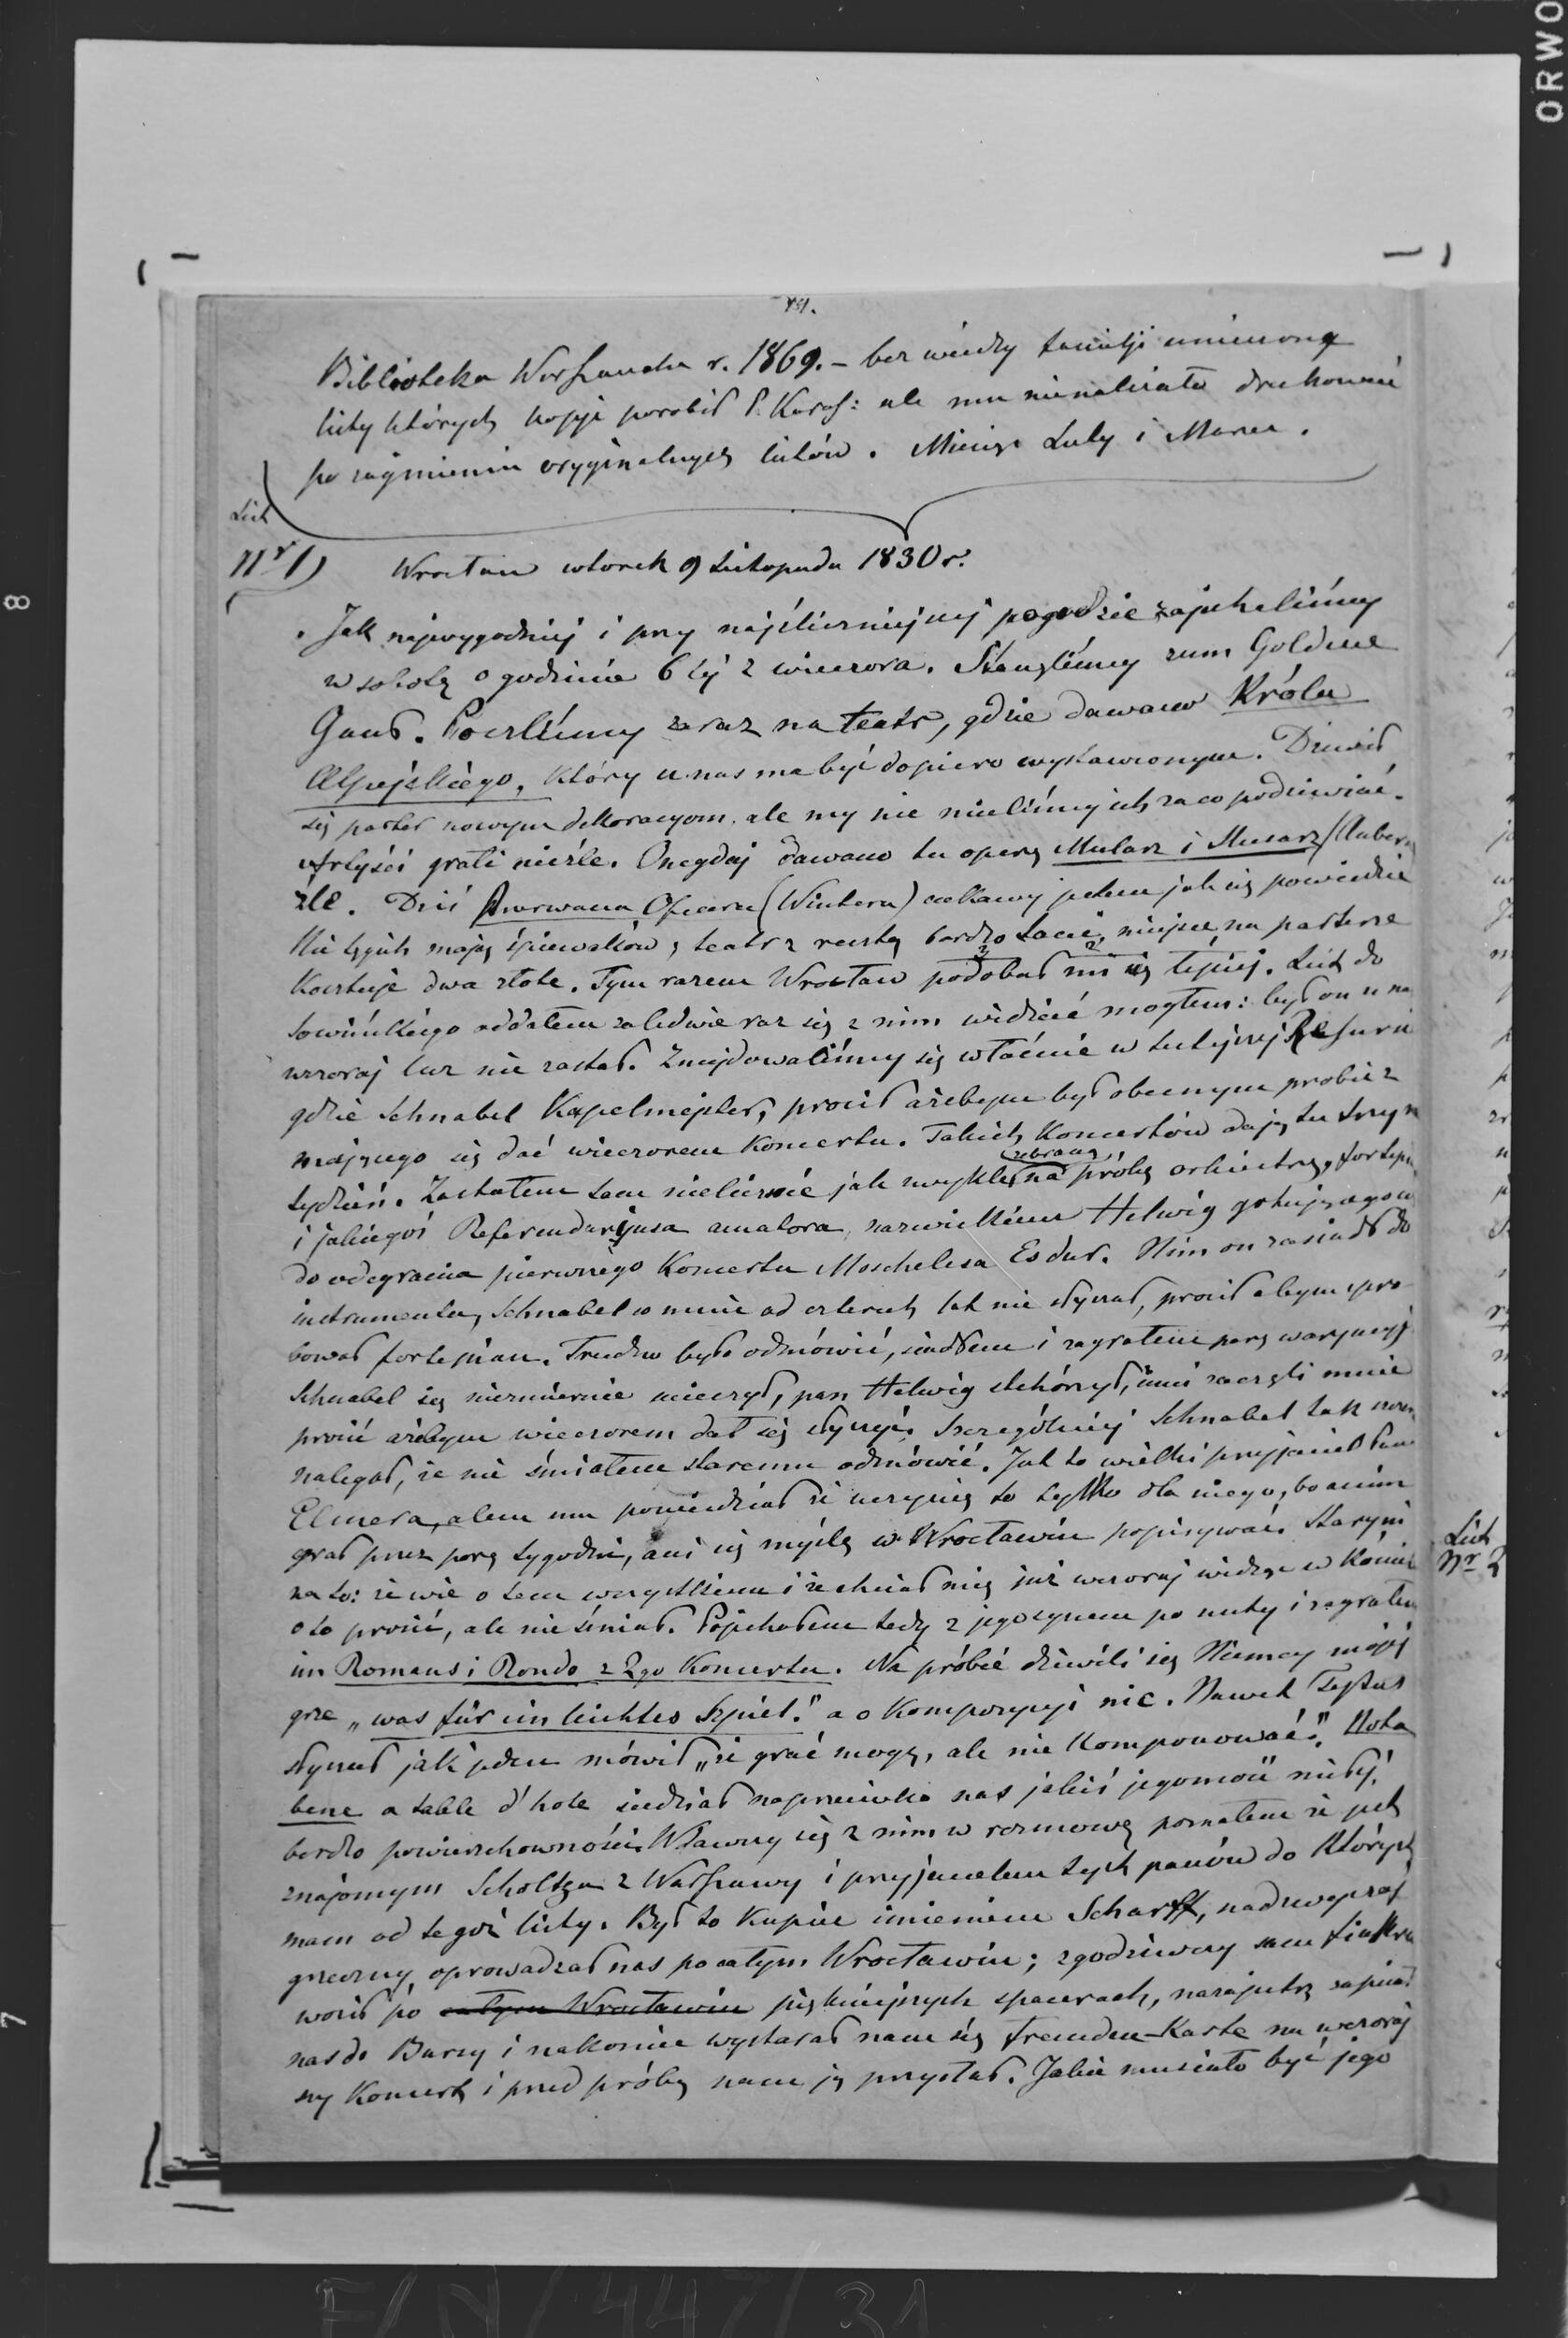 ORWO
8
7
Biblioteka Warszawska r. 1869. – bez wiedzy familji umieszono
listy których kopje porobił P. Karas: ale mu nienależało drukować
po zaginieniu oryginalnych listów. Miesiąc Luty i Marzec.
List
Nr 1)
Wrocław wtorek 9 Listopada 1830 r.
Jak najwygodniej i przy najśliczniejszej pogodzie zajechaliśmy
w sobotę o godzinie 6tej z wieczora. Stanęliśmy zum Goldene
Gans. Poszliśmy zaraz na teatr, gdzie dawano Króla
Alpejskiego, który u nas ma być dopiero wystawionym. Dziwił
się parter nowym dekoracyom, ale my nie mieliśmy ich za co podziwiać.
Artyści grali nieźle. Onegdaj dawano tu operę Mularz i Ślusarz (Aubera
źle. Dziś Przerwana Ofiara (Wintera) ciekawy jestem jak się powiedzie
Nietęgich mają śpiewaków, teatr z resztą bardzo tani, miejsce na parterze
Kosztuje dwa złote. Tym razem Wrocław podobał mi się lepiej. List do
Sowińskiego oddałem zaledwie raz się z nim widzieć mogłem: był on u nas
wczoraj lecz nie zastał. Znajdowaliśmy się właśnie w tutejszej Resursie
gdzie Schnabel Kapelmejster, prosił ażebym był obecnym próbie z
mającego się dać wieczorem Koncertu. Takich Koncertów dają tu trzy na
tydzień. Zastałem tam nielicznie jak zwykle zebraną na próbę orkiestrę, fortepian
i jakiegoś Referendarjusa amatora, nazwiskiem Helwig gotującego się
do odegrania pierwszego Koncertu Moschelesa Es dur. Nim on zasiadł do
instrumentu, Schnabel co mnie od czterech lat nie słyszał, prosił abym spró-
bował fortepian. Trudno było odmówić, siadłem i zagrałem parę waryacyj
Schnabel się niezmiernie ucieszył, pan Helwig stchórzył, inni zaczęli mnie
prosić ażebym wieczorem dał się słyszyć. Szczególniej Schnabel tak szcze
nalegał, że nie śmiałem staremu odmówić. Jest to wielki przyjaciel Pana
Elsnera, alem mu powiedział że uczynię to tylko dla niego, bo anim
grał przez parę tygodni, ani się myślę w Wrocławiu popisywać. Stary mi
na to: że wie o tem wszystkiem i że chciał mię już wczoraj widząc w Koście
o to prosić, ale nie śmiał. Pojechałem tedy z jego synem po nuty i zagrałem
im Romans i Rondo z 2go Koncertu. Na próbie dziwili się Niemcy mojej
grze „was für ein leichtes Spiel." a o Kompozycyi nic. Nawet Tytus
słyszał jak jeden mówił „że grać mogę, ale nie Komponować". Nota
bene a table d'hote siedział naprzeciwko nas jakiś jegomość miłej
bardzo powierzchowności. Wdawszy się z nim w rozmowę poznałem że jest
znajomym Scholtza z Warszawy i przyjacielem tych panów do których
mam od tegoż listy. Był to Kupiec imieniem Scharff, nadzwyczaj
grzeczny, oprowadzał nas po całym Wrocławiu; zgodziwszy sam fiakra
woził po całym Wrocławiu piękniejszych spacerach, nazajutrz zapisał
nas do Bursy i nakoniec wystarał nam się Fremden-Karte na wczoraj
szy Koncert i przed próbą nam ją przysłał. Jakie musiało być jego
List
Nr 2
F/N/447/31